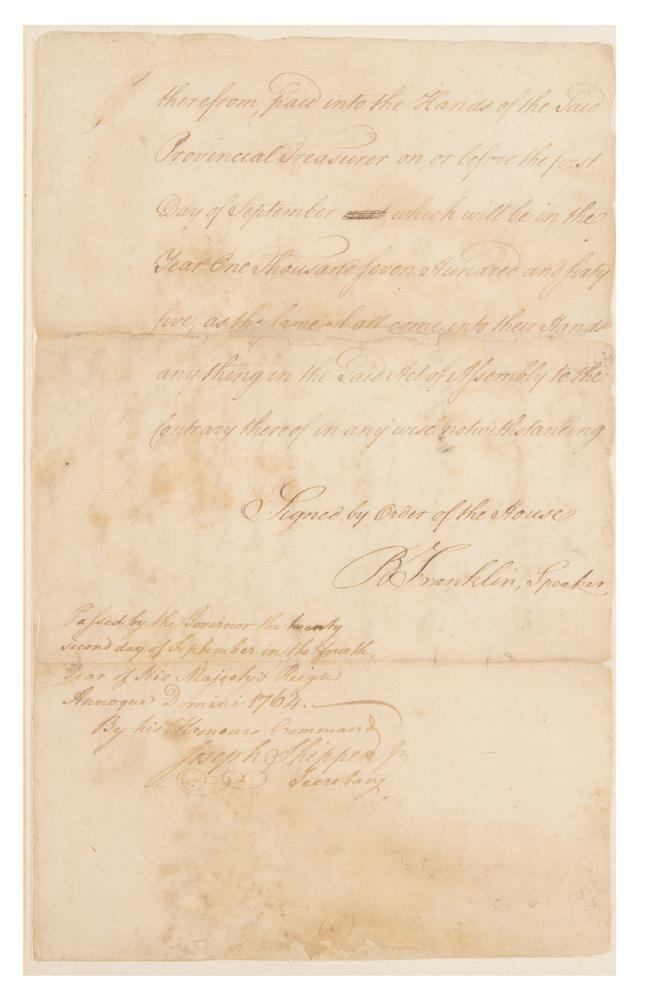 therefrom, paid into the Hands of the Said
Provincial Treasurer on, or before the first
Day of September, which will be in the
Year One Thousand seven Hundred and sixty
five, as the same shall come into their Hands
any thing in the Said Act of Assembly to the
Contrary thereof in any wise notwithstanding
Signed by Order of the House
B Franklin, Speaker
Passed by the Governor the twenty
second day of September in the fourth
Year of His Majesty's Reign
Annoque Domini 1764.
By his Honours Command
Joseph Shippen Jr
Secretary